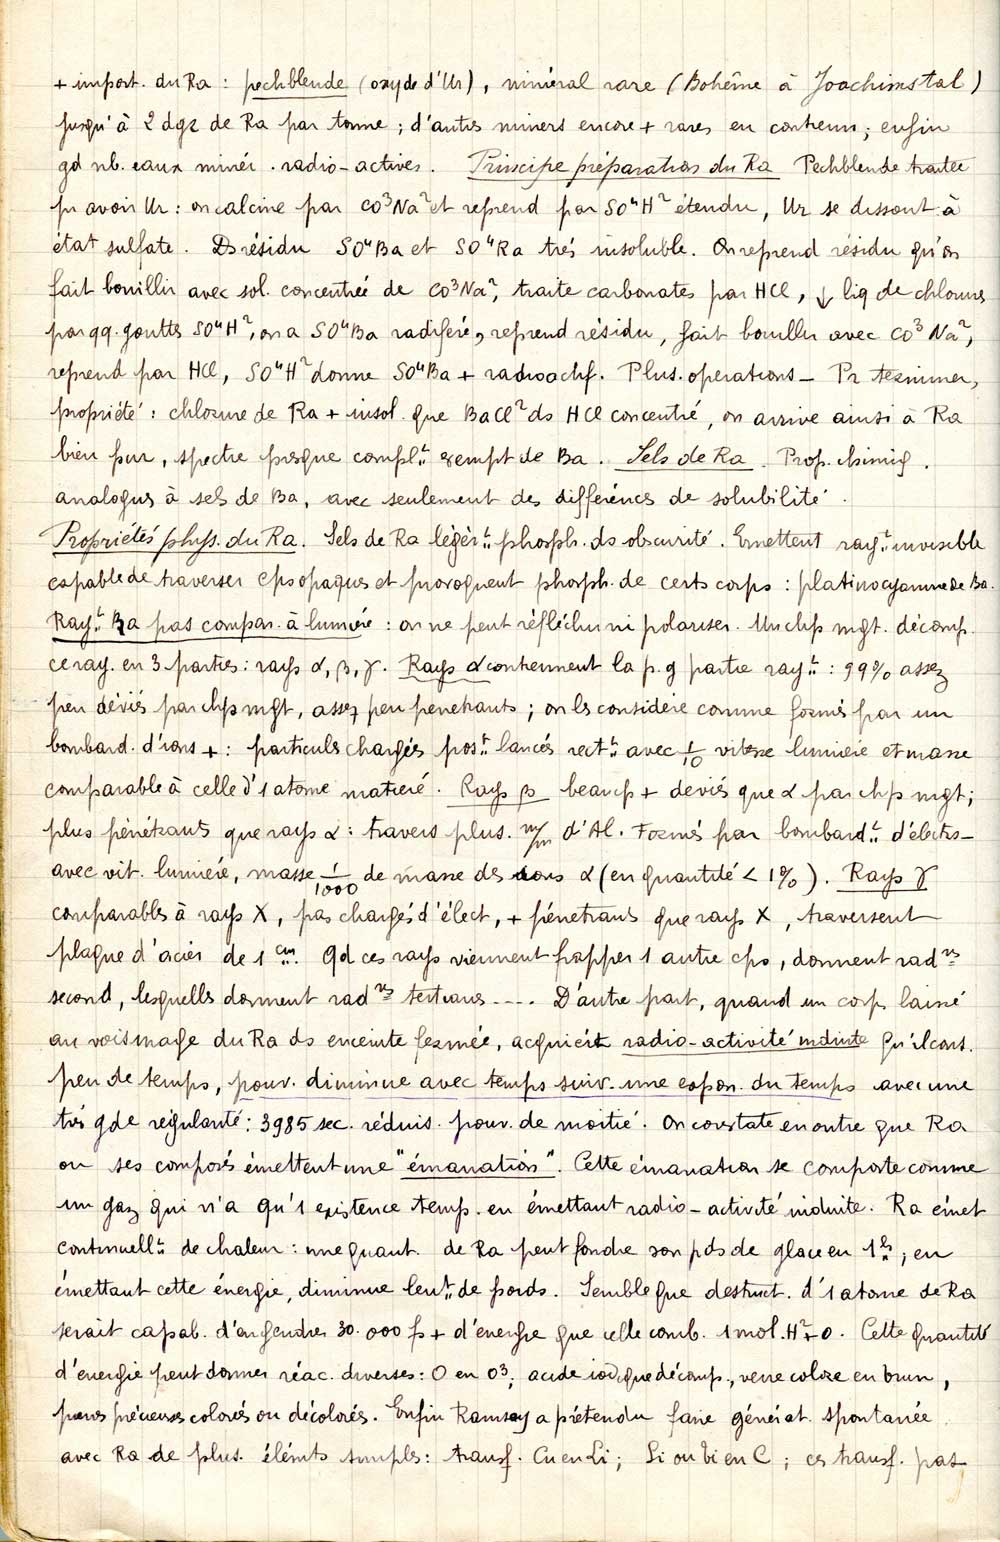 + import. du Ra : pechblende (oxyde d'Ur), minéral rare (Bohême à Joachimstal)
jusqu'à 2 dgr de Ra par tonne ; d'autres miners encore + rares en contienn ; enfin
gd nb. eaux minér. radio-actives. Principe préparation du Ra Pechblende traitée
pr avoir Ur : on calcine par CO³Na² et reprend par SO⁴H² étendu, Ur se dissout à
état sulfate. Ds résidu SO⁴Ba et SO⁴Ra très insoluble. On reprend résidu qu'on
fait bouillir avec sol. concentrée de CO³Na², traite carbonates par HCl, ↓ liq de chlorures
par qq. gouttes SO⁴H², on a SO⁴Ba radiféré, reprend résidu, fait bouillir avec CO³Na²,
reprend par HCl, SO⁴H² donne SO⁴Ba + radioactif. Plus. operations - Pr terminer,
propriété : chlorure de Ra + insol. que BaCl² ds HCl concentré, on arrive ainsi à Ra
bien pur, spectre presque complt exempt de Ba. Sels de Ra. Prop. chimiq.
analogues à sels de Ba, avec seulement des différences de solubilité.
Propriétés phys. du Ra. Sels de Ra légèrt phosph. ds obscurité. Emettent rayt invisible
capable de traverser cps opaques et provoquent phosph. de certs corps : platinocyanure de Ba.
Rayt Ra pas compar. à lumière : on ne peut réfléchir ni polariser. Un chp mgt. décomp.
ce ray. en 3 parties : rays α, β, γ. Rays α contiennent la p. g partie rayt : 99% assez
peu déviés par chp mgt, assez peu pénétrants ; on les considère comme formés par un
bombard. d'ions + : particules chargées post lancés rectt avec 1/10 vitesse lumière et masse
comparable à celle d'1 atome matière. Rays β beaucp + deviés que α par chp mgt ;
plus pénétrants que rays α : travers plus. m/m d'Al. Formés par bombardt d'élects-
avec vit. lumière, masse 1/1000 de masse des ions α (en quantité < 1%). Rays γ
comparables à rays X, pas chargés d'élect, + pénétrants que rays X, traversent
plaque d'acier de 1 cm. Qd ces rays viennent frapper 1 autre cps, donnent radns
second, lesquelles donnent radns tertiaires ---. D'autre part, quand un corps laissé
au voisinage du Ra ds enceinte fermée, acquiert radio-activité induite qu'il cons.
peu de temps, pouv. diminue avec temps suiv. une expon. du temps avec une
très gde régularité : 3985 sec. réduis. pouv. de moitié. On constate en outre que Ra
ou ses composés émettent une "émanation". Cette émanation se comporte comme
un gaz qui n'a qu'1 existence temp. en émettant radio-activité induite. Ra émet
continuellt de chaleur : une quant. de Ra peut fondre son pds de glace en 1h ; en
émettant cette énergie, diminue lent de poids. Semble que destruct. d'1 atome de Ra
serait capab. d'engendrer 30.000 f + d'énergie que celle comb. 1 mol. H²+O. Cette quantité
d'énergie peut donner réac. diverses : O en O³, acide iodique décomp., verre colore en brun,
pierres précieuses colorés ou décolorés. Enfin Ramsay a prétendu faire générat. spontanée
avec Ra de plus. éléments simples : transf. Cu en Li ; en C ; ces transf. pas